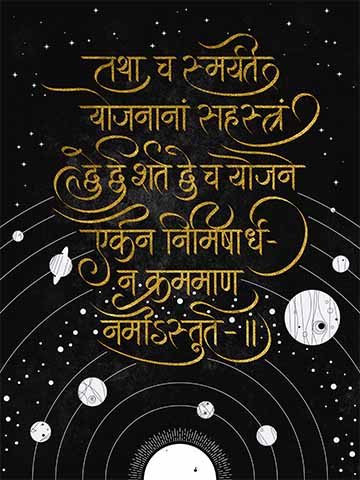 तथा च स्मर्यते
योजनानां सहस्त्रं
द्वे द्वे शते द्वे च योजने
एकेन निमिषार्धे-
न क्रममाण
नमोऽस्तुते- ॥